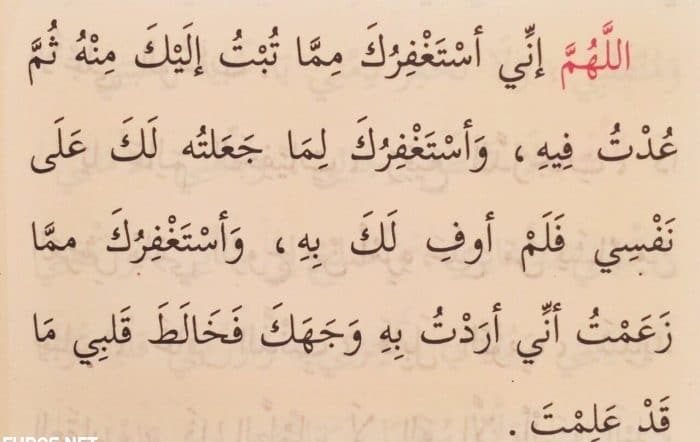 اللَّهُمَّ إنِّي أسْتَغْفِرُكَ مِمَّا تُبْتُ إلَيْكَ مِنْهُ ثُمَّ
عُدْتُ فِيهِ ، وَأسْتَغْفِرُكَ لِمَا جَعَلتُه لَكَ عَلَى
نَفْسِي فَلَمْ أوفِ لَكَ بِهِ ، وَأسْتَغْفِرُكَ ممَّا
زَعَمْتُ أنِّي أرَدْتُ بِهِ وَجَهَكَ فَخَالَطَ قَلبِي مَا
قَدْ عَلِمْتَ .